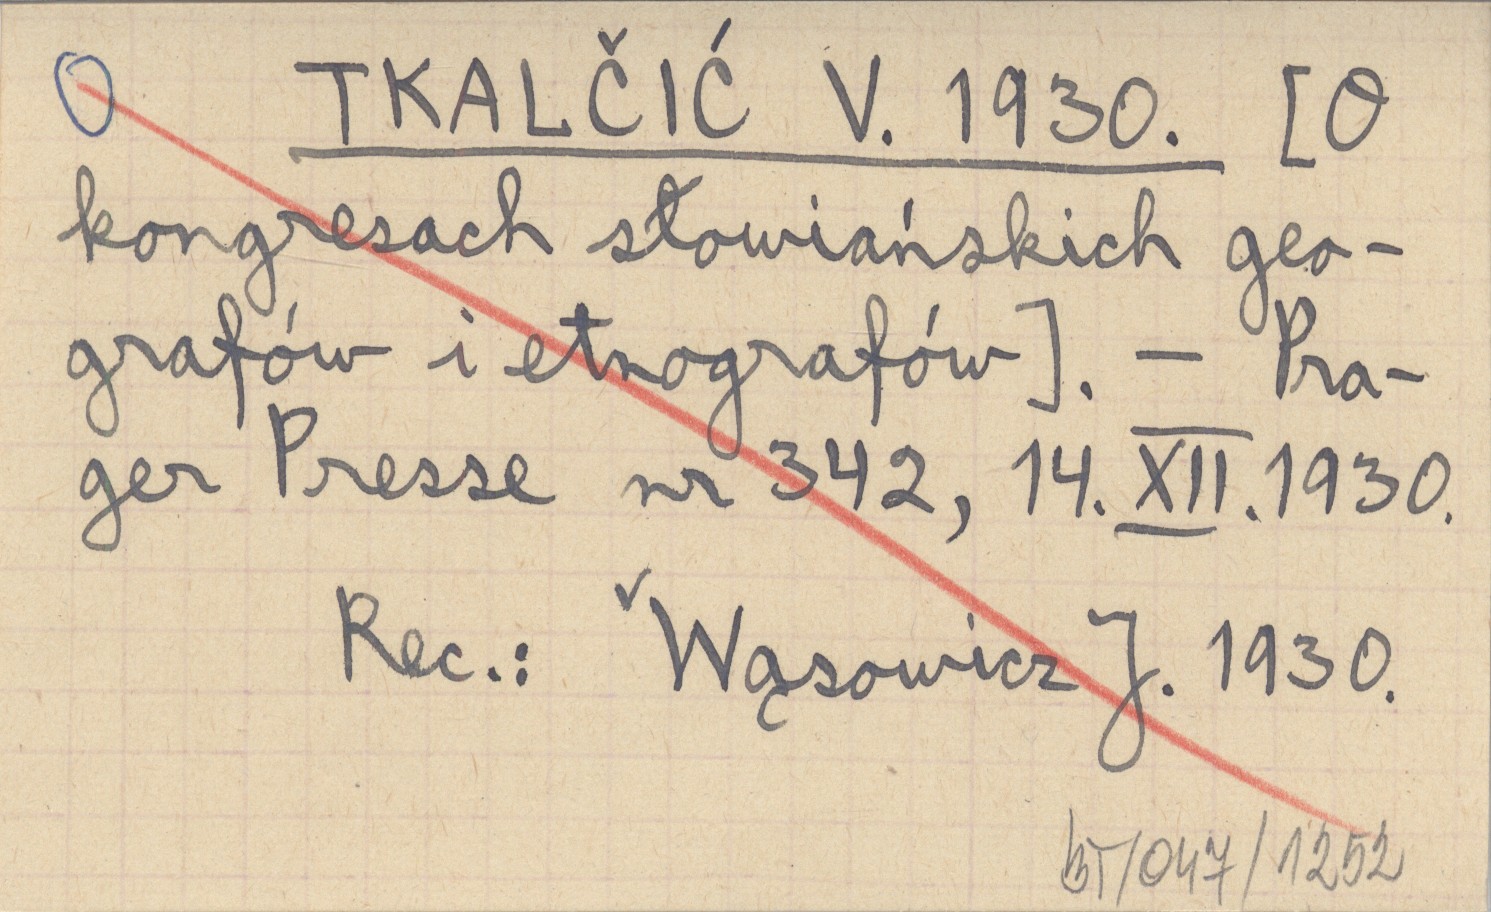 O TKALČIĆ V. 1930. [O
kongresach słowiańskich geo-
grafów i etnografów]. — Pra-
ger Presse nr 342, 14. XII. 1930.
Rec.: ˇWąsowicz J. 1930.
/047/1252